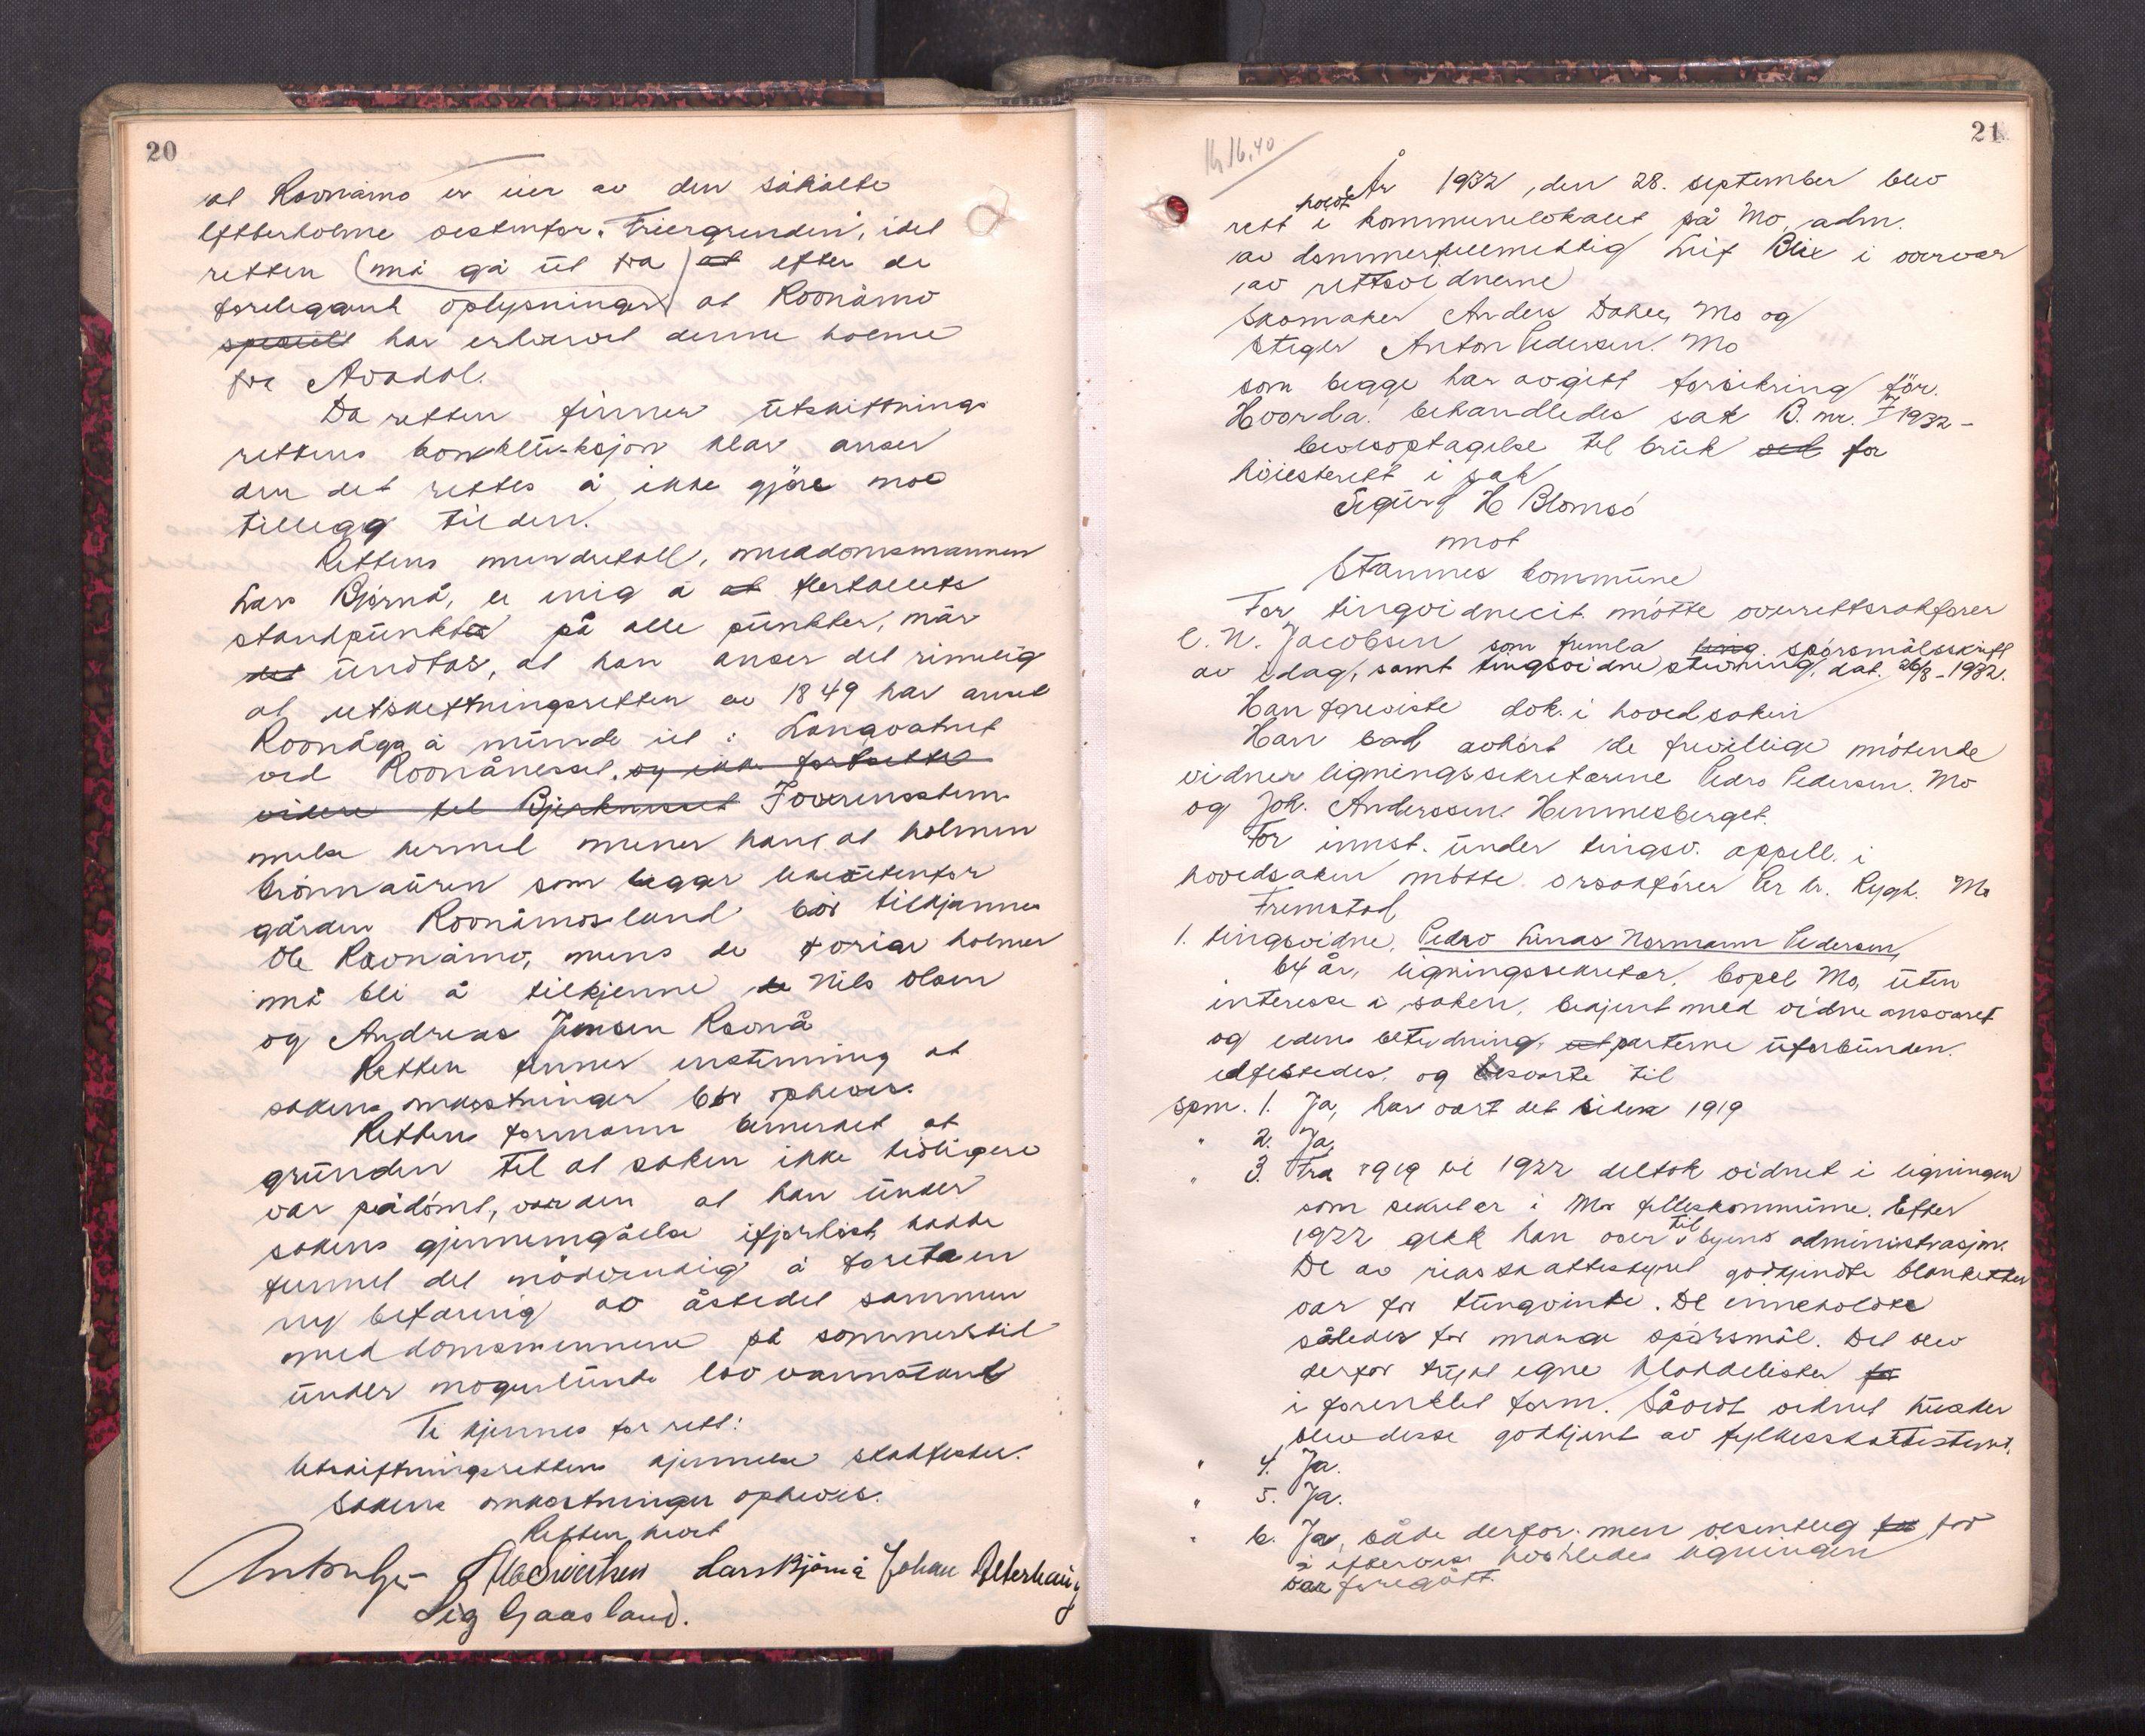 20
at Ravnåmo er eier av den såkalte
Efterholme oestenfor "Friergrunden", idet
retten (må gå ut fra) at efter de
foreliggende oplysninger at Ravnåmo
specielt har erhvervet denne holme
fra Avadal.
Da retten finner utskiftnings
rettens konklusjon klar anser
den det rettes å ikke gjøre noe
tillegg til den.
Rettens mindretall, meddomsmannen
Lars Bjørnå, er enig i at flertallets
standpunkter på alle punkter, når
det undtas, at han anser det rimelig
at utskiftningsretten av 1849 har anset
Ravnåga å munde ut i Langvatnet
ved Ravnåneset. og ikke fortsette
videre til Bjerkneset I overensstem
melse hermed mener han at holmen
Grønnauren som ligger like utenfor
gården Ravnåmos land bør tilkjennes
Ole Ravnåmo, mens de øvrige holmer
må bli å tilkjenne de Nils Olsen
og Andreas Jensen Ravnå
Retten finner enstemmig at
sakens omkostninger bør opheves.
Rettens formann bemerket at
grunden til at saken ikke tidligere
var pådømt, var den at han under
sakens gjennemgåelse ifjor høst hadde
funnet det nødvendig å foreta en
ny befaring av åstedet sammen
med domsmennene på sommerstid
under nogenlunde lav vannstand
Ti kjennes for rett:
Utskiftningsrettens kjennelse stadfestes.
Sakens omkostninger opheves.
Retten hevet
Lars Bjørnå Johan Alterhaug
Sig Gaasland.
21
16,40
År 1932, den 28. september blev
holdt
rett i kommunelokalet på Mo, adm.
av dommerfullmektig Leif Blix i overvær
av rettsvidnerne
skomaker Anders Mo og
Stiger Anton Pedersen. Mo
som begge har avgitt forsikring før.
Hvorda: behandledes sak B. nr. 7 1932 -
bevisoptagelse til bruk ved for
høiesterett i sak
Sigurd H Blomsö
mot
Stamnes kommune
For tingvidnecit. møtte overrettssakfører
C. N. Jacobsen som fremla ting. spørsmålsskrift
av idag, samt tingsvidnestevning, dat. 26/8-1932.
Han foreviste dok. i hovedsaken
Han bad avhørt de frivillige møtende
vidner ligningssekretærene Pedro Pedersen. Mo
og Joh. Anderssen. Hemnesberget.
For innst. under tingsv. appell. i
hovedsaken møtte orsakfører Per Chr. Rygh. Mo
Fremstod
1. tingsvidne, Pedro Linas Normann Pedersen,
64 år, ligningssekretær, bopel Mo, uten
interesse i saken, bekjent med vidneansvaret
og edens betydning. ut parterne uforbunden.
edfestedes. og besvarte til
Spm. 1. Ja, har vært det siden 1919
" 2. Ja,
" 3. Fra 1919 til 1922 deltok vidnet i ligningen
som sekretær i Mo felleskommune. Efter
1922 gikk han over til byens administrasjon.
De av riksskattestyret godkjendte blanketter
var for tungvinte. De inneholdte
således for mange spørsmål. Det blev
derfor trykt egne kladdelister for
i forenklet form. Såvidt vidnet husker
blev disse godkjent av fylkesskattestyret.
" 4. Ja.
" 5. Ja.
" 6. Ja, både derfor. men vesentlig for for
å efterveise hvorledes ligningen
var foregått.